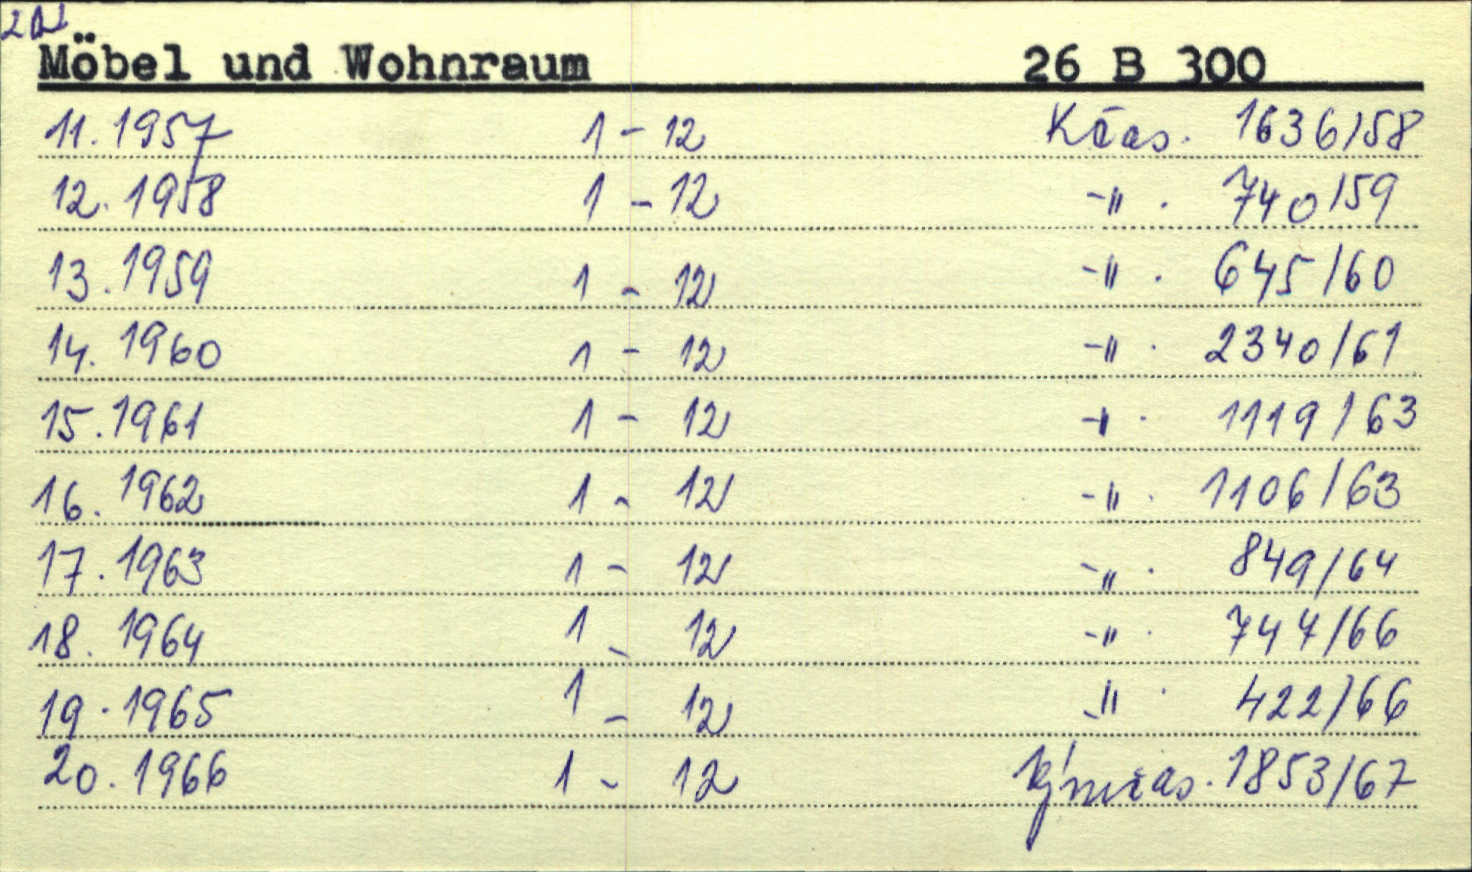 Möbel und Wohnraum 26 B 300
11. 1957 1 - 12 1636/58
12. 1958 1 - 12 -"- 740/59
13. 1959 1 - 12 -"- 645/60
14. 1960 1 - 12 -"- 2340/61
15. 1961 1 - 12 -"- 1119/63
16. 1962 1 - 12 -"- 1106/63
17. 1963 1 - 12 -"- 849/64
18. 1964 1 - 12 -"- 744/66
19. 1965 1 - 12 -"- 422/66
20. 1966 1 - 12 1853/67